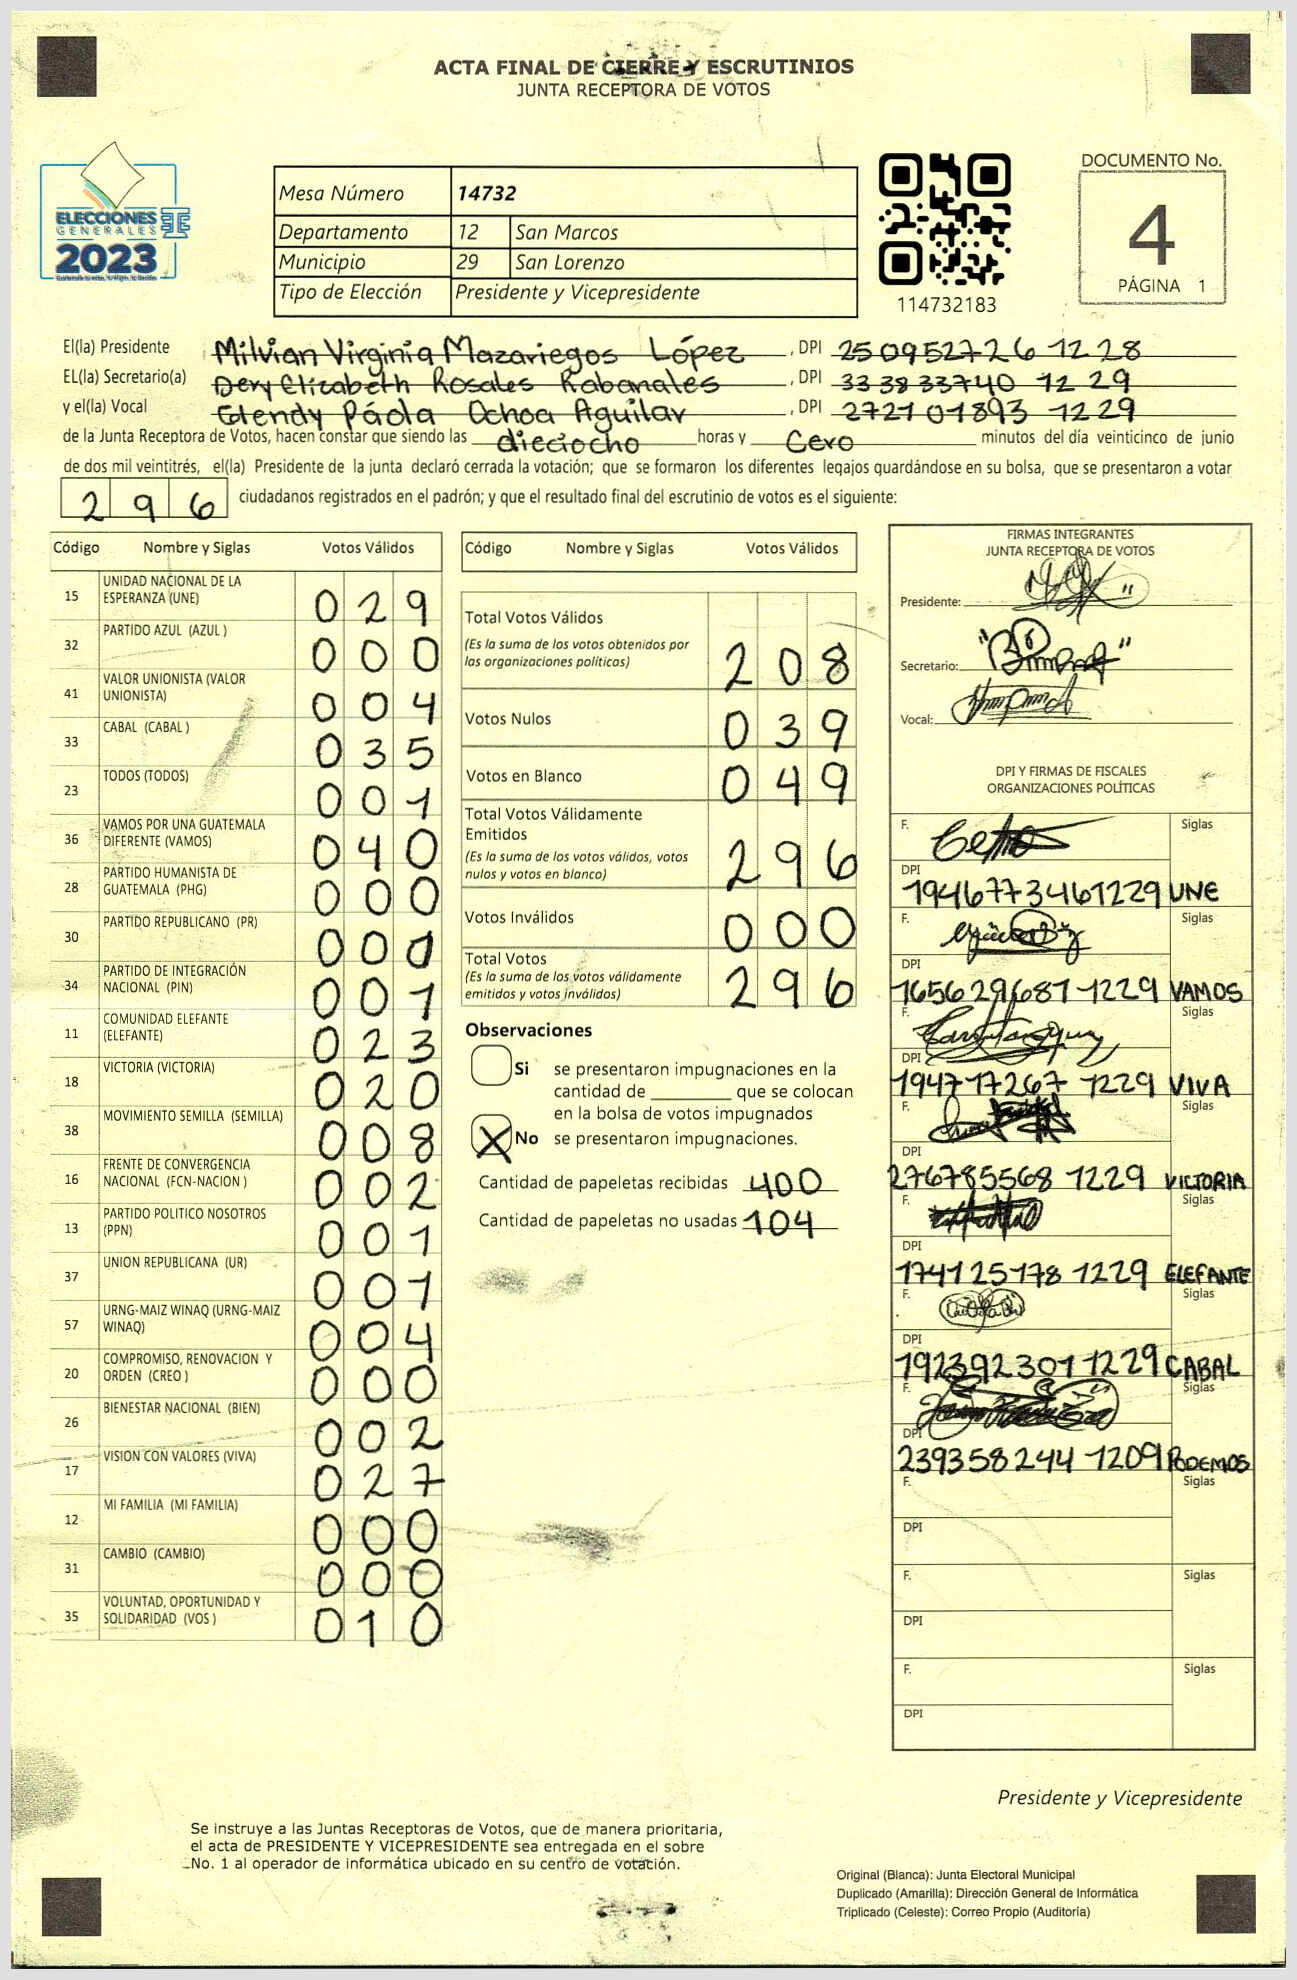 ACTA FINAL DE CIERRE Y ESCRUTINIOS
JUNTA RECEPTORA DE VOTOS
ELECCIONES
GENERALES
2023
Mesa Número 14732
Departamento 12 San Marcos
Municipio 29 San Lorenzo
Tipo de Elección Presidente y Vicepresidente
114732183
DOCUMENTO No.
4
PÁGINA 1
El(la) Presidente Milvian Virginia Mazariegos López, DPI 25 0952726 1228
EL(la) Secretario(a) Dery Elizabeth Rosales Rabanales, DPI 33 38 33740 12 29
y el(la) Vocal Glendy Páola Ochoa Aguilar, DPI 2721 01893 1229
de la Junta Receptora de Votos, hacen constar que siendo las dieciocho horas y Cero minutos del día veinticinco de junio
de dos mil veintitrés, el(la) Presidente de la junta declaró cerrada la votación; que se formaron los diferentes legajos quardándose en su bolsa, que se presentaron a votar
296 ciudadanos registrados en el padrón; y que el resultado final del escrutinio de votos es el siguiente:
Código Nombre y Siglas Votos Válidos
15 UNIDAD NACIONAL DE LA ESPERANZA (UNE) 029
32 PARTIDO AZUL (AZUL ) 000
41 VALOR UNIONISTA (VALOR UNIONISTA) 004
33 CABAL (CABAL ) 035
23 TODOS (TODOS) 001
36 VAMOS POR UNA GUATEMALA DIFERENTE (VAMOS) 040
28 PARTIDO HUMANISTA DE GUATEMALA (PHG) 000
30 PARTIDO REPUBLICANO (PR) 00
34 PARTIDO DE INTEGRACIÓN NACIONAL (PIN) 001
11 COMUNIDAD ELEFANTE (ELEFANTE) 023
18 VICTORIA (VICTORIA) 020
38 MOVIMIENTO SEMILLA (SEMILLA) 008
16 FRENTE DE CONVERGENCIA NACIONAL (FCN-NACION ) 002
13 PARTIDO POLITICO NOSOTROS (PPN) 001
37 UNION REPUBLICANA (UR) 001
57 URNG-MAIZ WINAQ (URNG-MAIZ WINAQ) 004
20 COMPROMISO, RENOVACION Y ORDEN (CREO ) 000
26 BIENESTAR NACIONAL (BIEN) 002
17 VISION CON VALORES (VIVA) 027
12 MI FAMILIA (MI FAMILIA) 000
31 CAMBIO (CAMBIO) 000
35 VOLUNTAD, OPORTUNIDAD Y SOLIDARIDAD (VOS ) 010
Código Nombre y Siglas Votos Válidos
Total Votos Válidos 208
(Es la suma de los votos obtenidos por
las organizaciones políticas)
Votos Nulos 039
Votos en Blanco 049
Total Votos Válidamente
Emitidos 296
(Es la suma de los votos válidos, votos
nulos y votos en blanco)
Votos Inválidos 000
Total Votos 296
(Es la suma de los votos válidamente
emitidos y votos inválidos)
Observaciones
Si se presentaron impugnaciones en la
cantidad de ________ que se colocan
en la bolsa de votos impugnados
X No se presentaron impugnaciones.
Cantidad de papeletas recibidas 400
Cantidad de papeletas no usadas 104
FIRMAS INTEGRANTES
JUNTA RECEPTORA DE VOTOS
Presidente:
Secretario:
Vocal:
DPI Y FIRMAS DE FISCALES
ORGANIZACIONES POLÍTICAS
F. Siglas
DPI 1946773461229 UNE
F. Siglas
DPI 1656296871229 VAMOS
F. Siglas
DPI 194717267 1229 VIVA
F. Siglas
DPI 276785568 1229 VICTORIA
F. Siglas
DPI 174125178 1229 ELEFANTE
F. Siglas
DPI 192392301 1229 CABAL
F. Siglas
DPI 239358244 1209 PODEMOS
F. Siglas
DPI
F. Siglas
DPI
F. Siglas
DPI
Presidente y Vicepresidente
Se instruye a las Juntas Receptoras de Votos, que de manera prioritaria,
el acta de PRESIDENTE Y VICEPRESIDENTE sea entregada en el sobre
No. 1 al operador de informática ubicado en su centro de votación.
Original (Blanca): Junta Electoral Municipal
Duplicado (Amarilla): Dirección General de Informática
Triplicado (Celeste): Correo Propio (Auditoría)